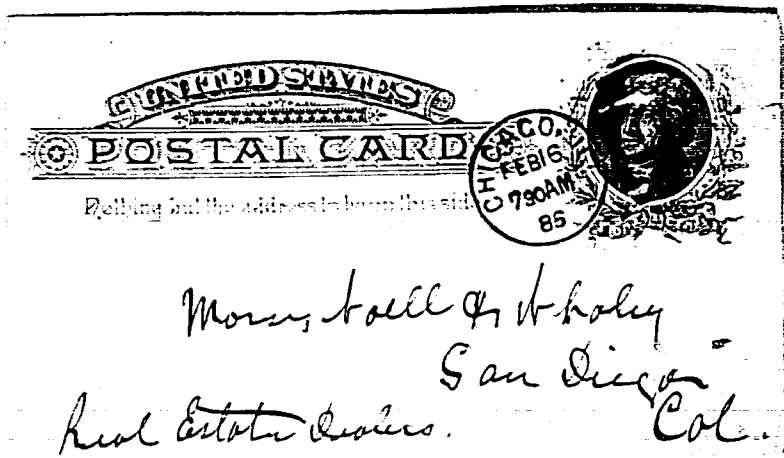 UNITED STATES
POSTAL CARD
Nothing but the address to be on this side.
CHICAGO, ILL.
FEB 16
730AM
85
Morse, Noell & Whaley
San Diego
Real Estate Dealers.
Cal.